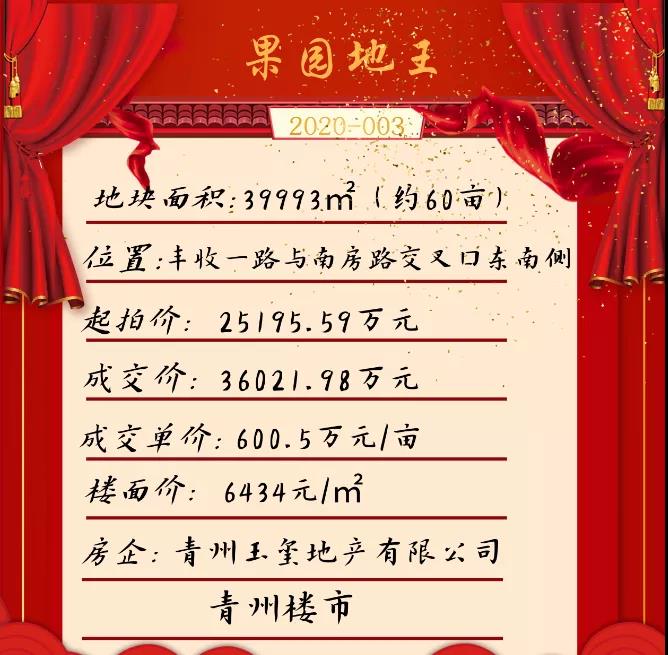 果园地王
2020-003
地块面积:39993㎡（约60亩）
位置:丰收一路与南房路交叉口东南侧
起拍价: 25195.59万元
成交价: 36021.98万元
成交单价:600.5万元/亩
楼面价: 6434元/㎡
房企: 青州玉玺地产有限公司
青州楼市